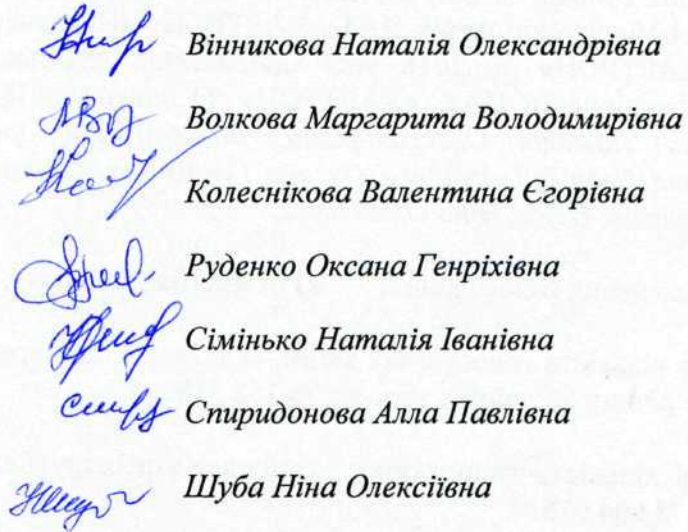 Вінникова Наталія Олександрівна
Волкова Маргарита Володимирівна
Колеснікова Валентина Єгорівна
Руденко Оксана Генріхівна
Сімінько Наталія Іванівна
Спиридонова Алла Павлівна
Шуба Ніна Олексіївна